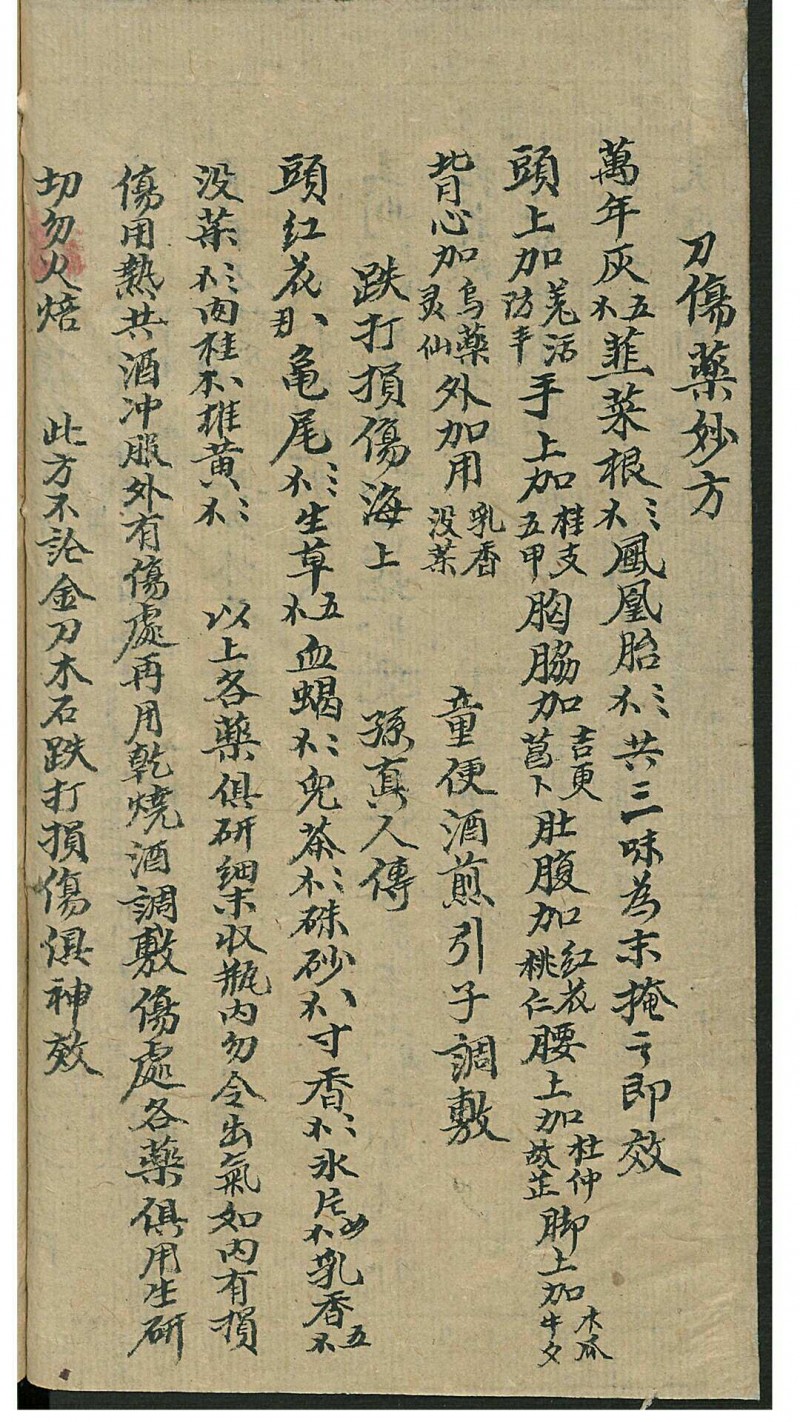 刀傷藥妙方
萬年灰五不韮菜根不鳳凰胎不共三味為末掩之即效
頭上加羌活防手上加桂支五甲胸脇加吉更菖卜肚腹加紅衣桃仁腰上加杜仲故芷脚上加木瓜牛夕
背心加烏藥灵仙外加用乳香没葉 童便酒煎引子調敷
跌打損傷海上 孫真人傳
頭紅花龟尾不生草五不血蝎不兒茶不硃砂不寸香不氷片不乳香五不
没葉不肉桂不雄黄不 以上各藥俱研細末收瓶内勿令出氣如内有損
傷用熱共酒冲服外有傷處再用乾燒酒調敷傷處各藥俱用生研
切勿火焙 此方不論金刀木石跌打損傷俱神效